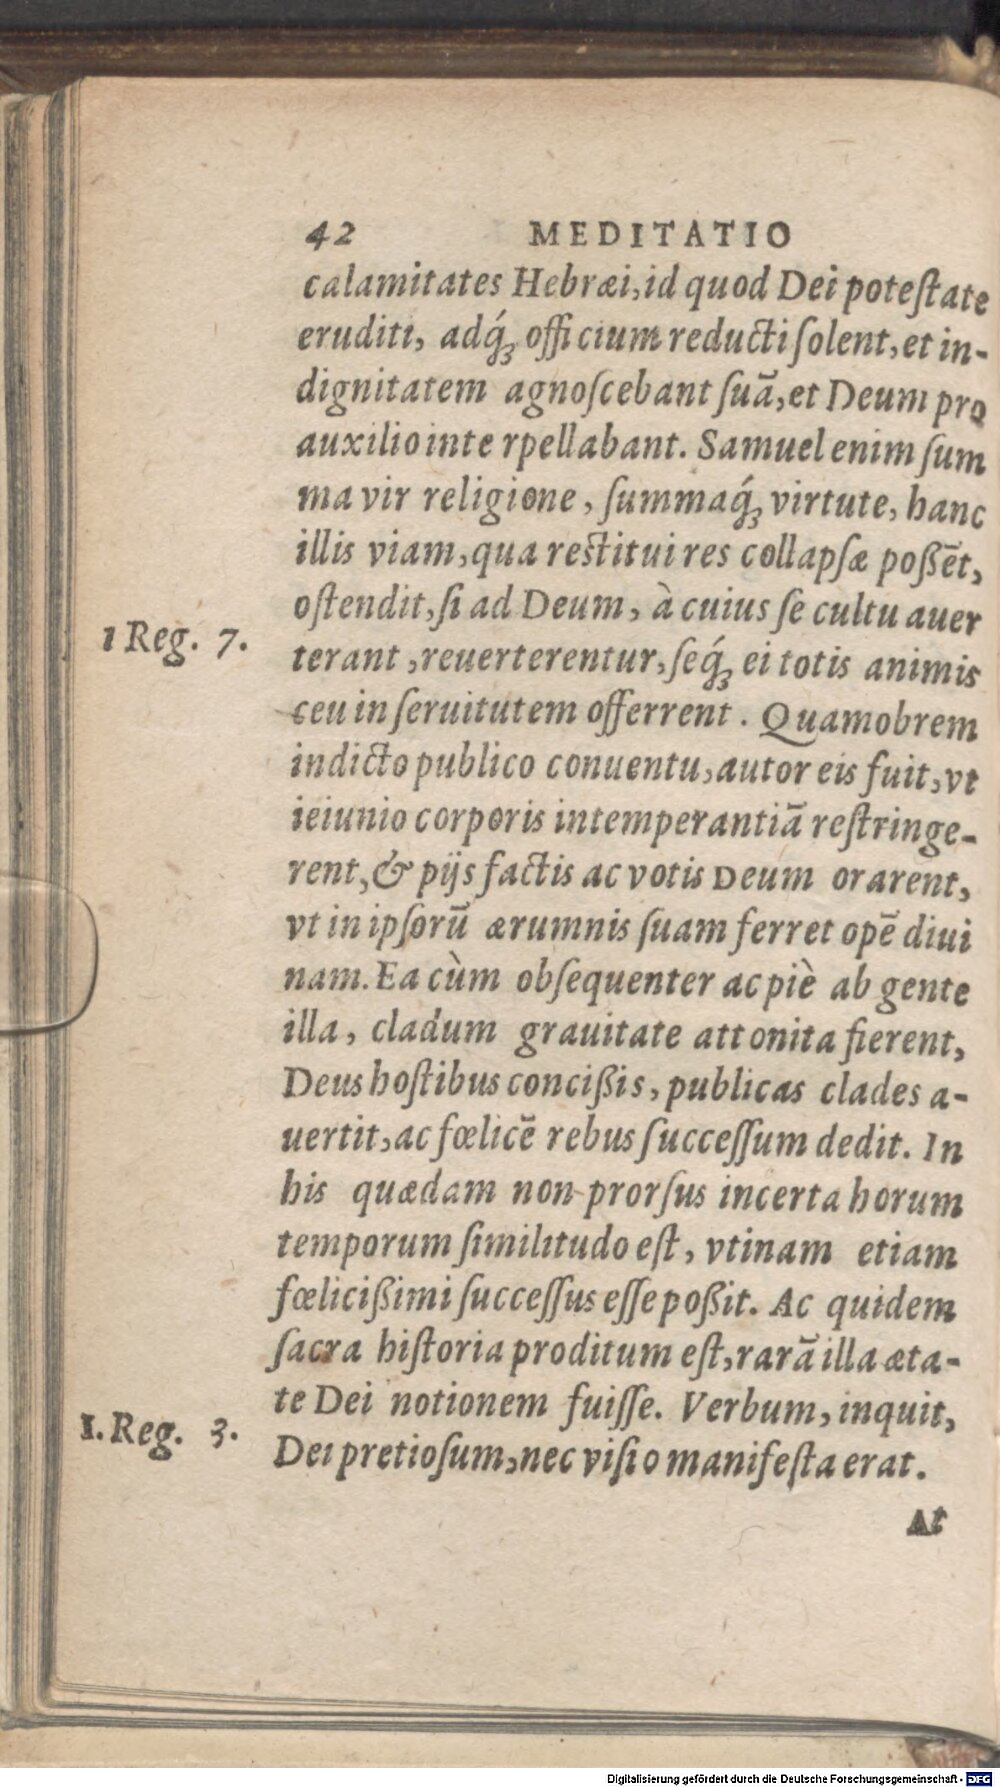 42 MEDITATIO
calamitates Hebræi, id quod Dei poteſtate
eruditi, adq́ꝫ officium reducti ſolent, et in-
dignitatem agnoſcebant ſuã, et Deum pro
auxilio inte rpellabant. Samuel enim ſum
ma vir religione, ſummaq́ꝫ virtute, hanc
illis viam, qua reſtitui res collapſæ poßẽt,
oſtendit, ſi ad Deum, à cuius ſe cultu auer
1 Reg. 7.
terant, reuerterentur, ſeq́ꝫ ei totis animis
ceu in ſeruitutem offerrent. Quamobrem
indicto publico conuentu, autor eis fuit, vt
ieiunio corporis intemperantiã reſtringe-
rent, & pijs factis ac votis Deum orarent,
vt in ipſorũ ærumnis ſuam ferret opẽ diui
nam. Ea cùm obſequenter ac piè ab gente
illa, cladum grauitate attonita fierent,
Deus hoſtibus concißis, publicas clades a-
uertit, ac fœlicẽ rebus ſucceſſum dedit. In
his quædam non prorſus incerta horum
temporum ſimilitudo eſt, vtinam etiam
fœlicißimi ſucceſſus eſſe poßit. Ac quidem
ſacra hiſtoria proditum eſt, rarã illa æta-
te Dei notionem fuiſſe. Verbum, inquit,
1. Reg. 3.
Dei pretioſum, nec viſio manifeſta erat.
At
Digitalisierung gefördert durch die Deutsche Forschungsgemeinschaft - DFG